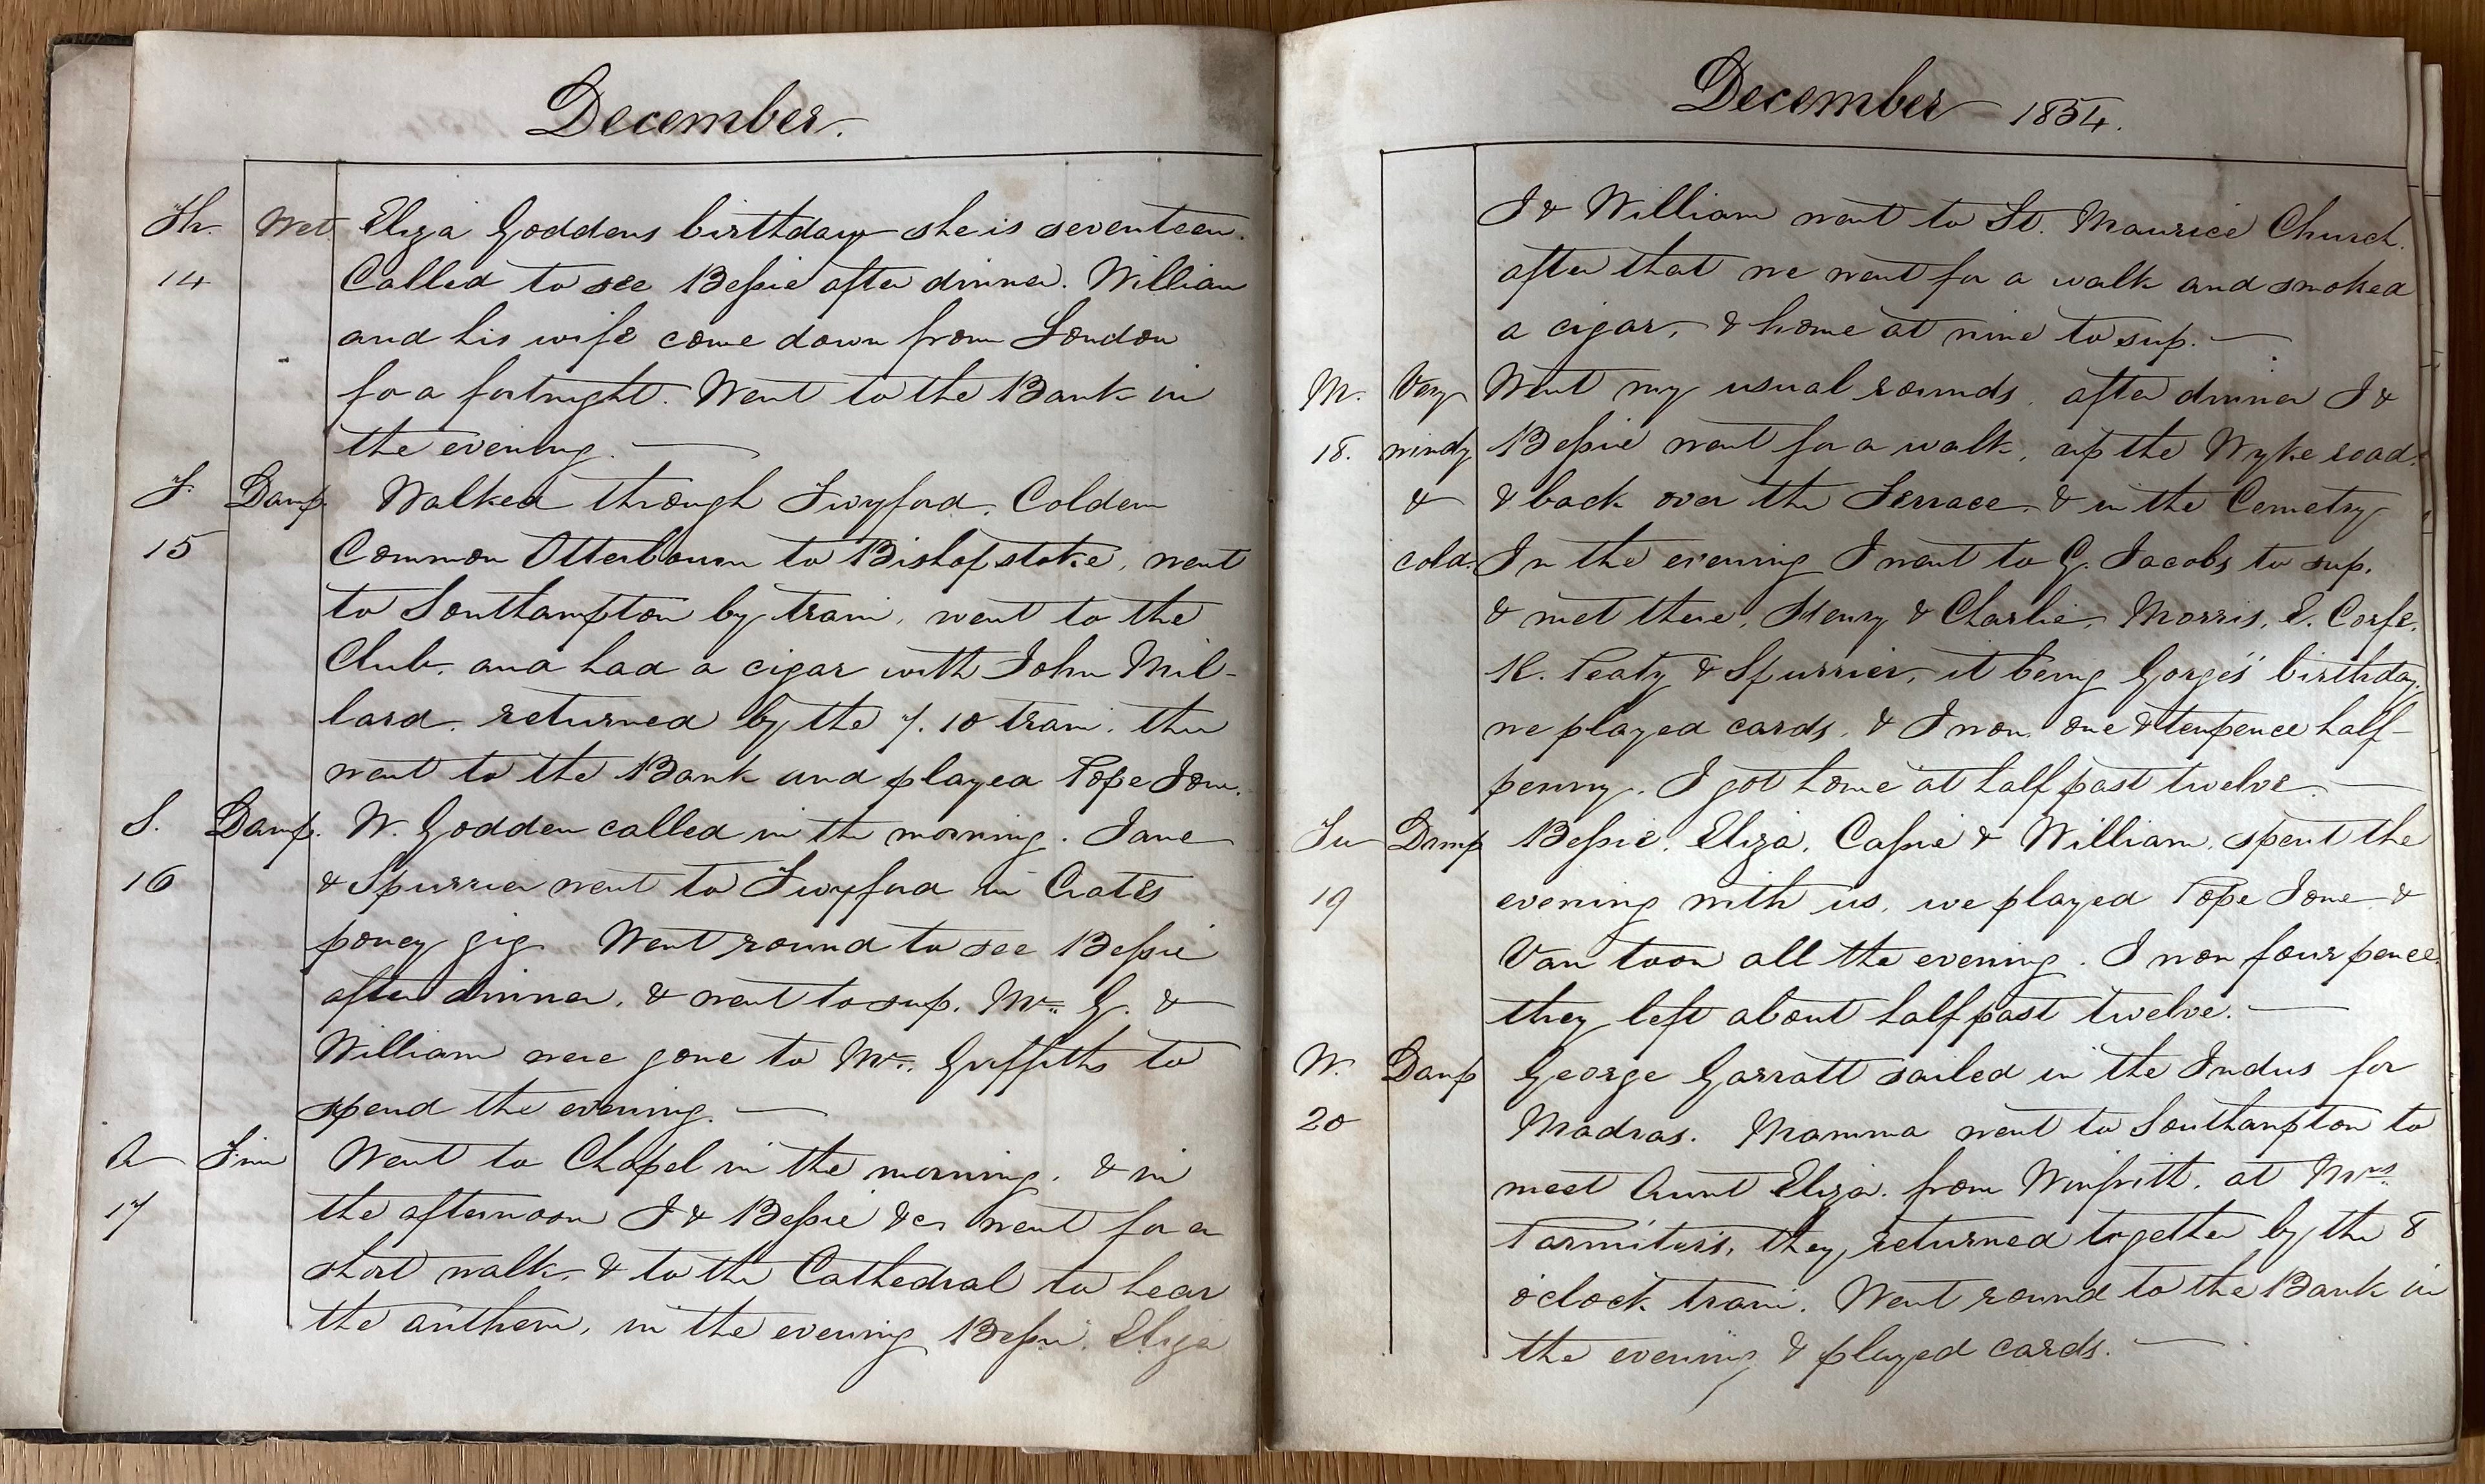 December.
Th. Wet Eliza Goddens birthday she is seventeen.
14 Called to see Bessie after dinner. William
and his wife come down from London
for a fortnight. Went to the Bank in
the evening. —
F. Damp. Walked through Twyford, Colden
15 Common Otterbourn to Bishopstoke, went
to Southampton by train, went to the
Club, and had a cigar with John Mil-
lard. returned by the 7.10 train, then
went to the Bank and played Pope Jone.
S. Damp. W. Godden called in the morning. Jane
16 & Spurrier went to Twyford in
poney gig. Went round to see Bessie
after dinner, & went to sup. Mrs. G. &
William were gone to Mrs. Griffiths to
spend the evening. —
A Fine Went to Chapel in the morning, & in
17 the afternoon I & Bessie &c. went for a
short walk, & to the Cathedral to hear
the anthem, in the evening Bessie, Eliza
December 1854.
I & William went to St. Maurice Church.
after that we went for a walk and smoked
a cigar, & home at nine to sup. —
M. Very Went my usual rounds, after dinner I &
18. windy Bessie went for a walk, up the Wyke road.
& & back over the Terrace, & in the Cemetry
cold. In the evening I went to G. Jacobs to sup.
& met there, Henry & Charlie, Morris, E. Corfe.
R. Peaty & Spurrier, it being Gorges' birthday,
we played cards, & I won, one & tenpence half-
penny. I got home at half past twelve. —
Tu Damp Bessie, Eliza, Cassie & William, spent the
19 evening with us, we played Pope Jone &
Van toon all the evening. I won fourpence,
they left about half past twelve. —
W. Damp George Garratt sailed in the Indus for
20 Madras. Mamma went to Southampton to
meet Aunt Eliza, from Winfrith, at Mrs.
they returned together by the 8
o'clock train. Went round to the Bank in
the evening & played cards. —